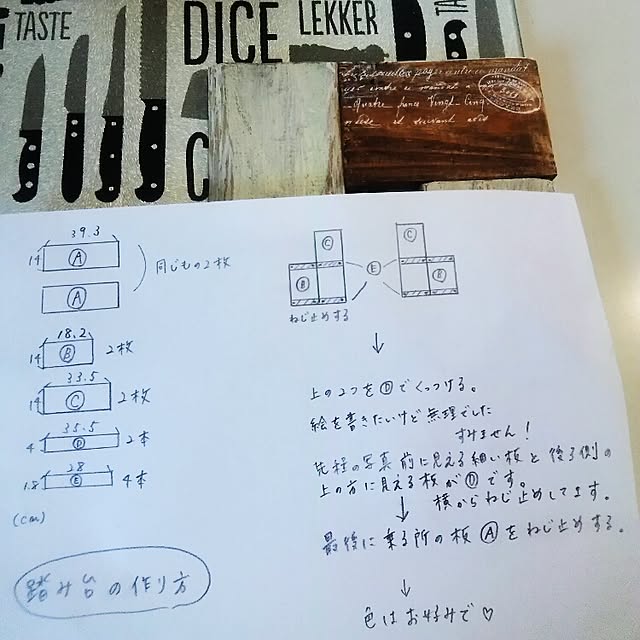 TASTE
DICE
LEKKER
TA
C
Quatre
Vingt Cinq
et suivant avis
39.3
14
A
A
同じもの2枚
18.2
14
B
2枚
33.5
14
C
2枚
35.5
4
D
2本
28
1.8
E
4本
(cm)
踏み台の作り方
C
B
E
C
B
ねじ止めする
↓
上の2つをⒹでくっつける。
絵を書きたいけど無理でした
すみません!
先程の写真前に見える細い板と後ろ側の
上の方に見える板がⒹです。
横からねじ止めしてます。
↓
最後に乗る所の板Ⓐをねじ止めする。
↓
色はお好みで♡